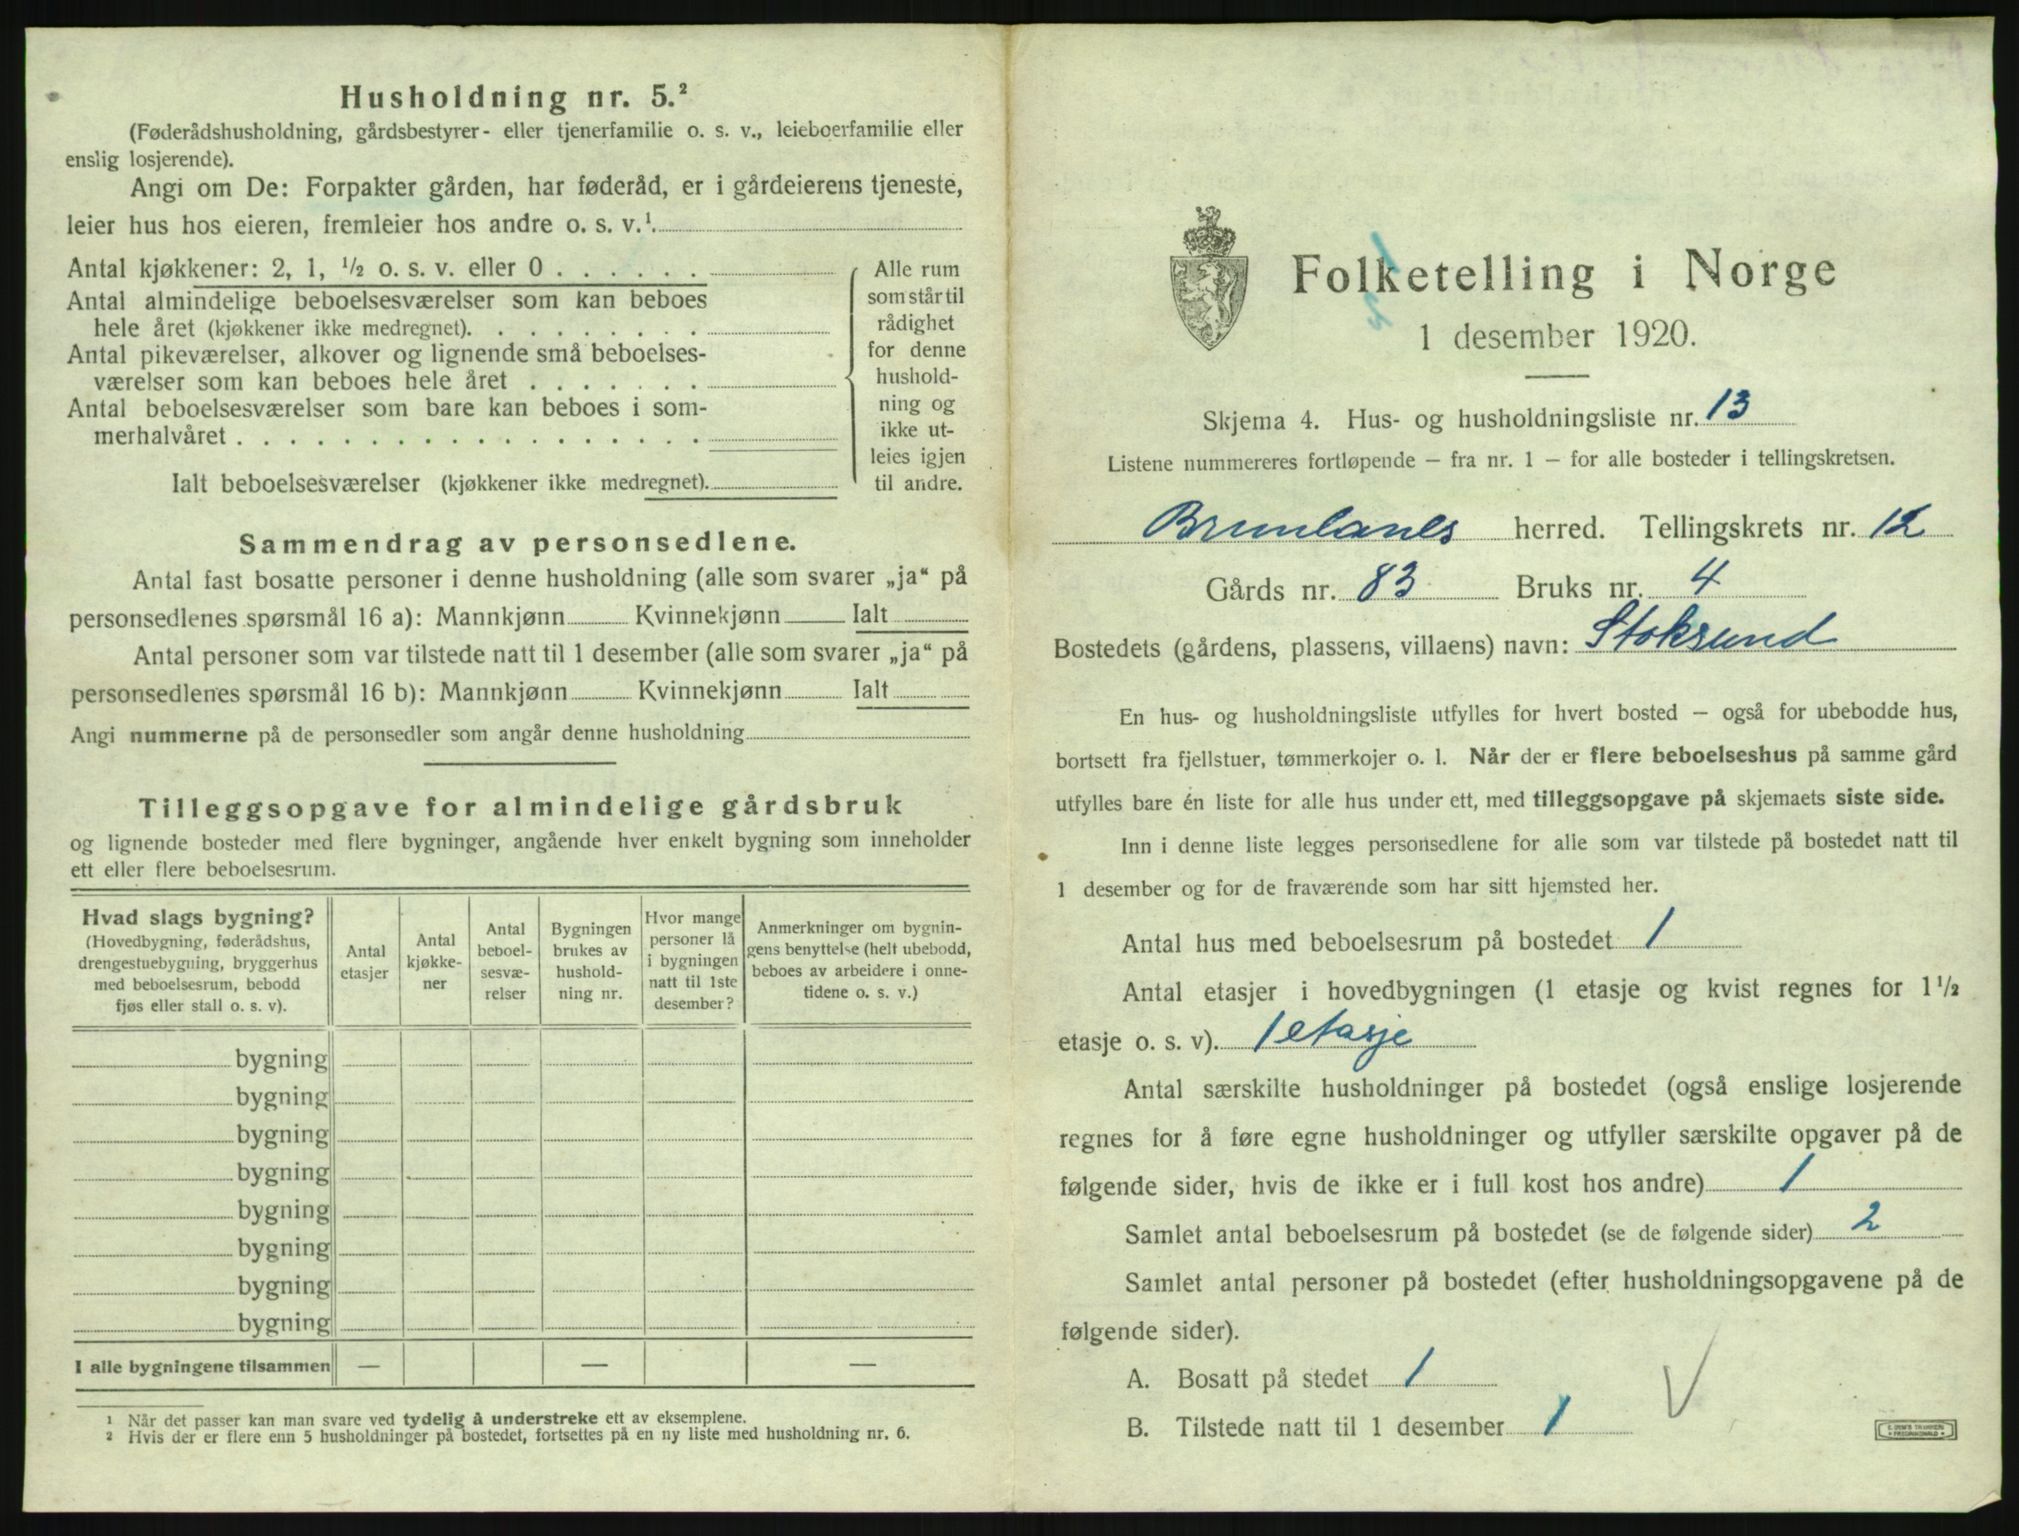 Husholdning nr. 5.²
(Føderådshusholdning, gårdsbestyrer- eller tjenerfamilie o. s. v., leieboerfamilie eller
enslig losjerende).
Angi om De: Forpakter gården, har føderåd, er i gårdeierens tjeneste,
leier hus hos eieren, fremleier hos andre o. s. v.¹.
Antal kjøkkener: 2, 1, ½ o. s. v. eller 0 . . . . . .
Antal almindelige beboelsesværelser som kan beboes
hele året (kjøkkener ikke medregnet). . . . . . . . .
Antal pikeværelser, alkover og lignende små beboelses-
værelser som kan beboes hele året . . . . . . .
Antal beboelsesværelser som bare kan beboes i som-
merhalvåret . . . . . . . . . . . . . . . . . .
Ialt beboelsesværelser (kjøkkener ikke medregnet).
Alle rum
som står til
rådighet
for denne
hushold-
ning og
ikke ut-
leies igjen
til andre.
Sammendrag av personsedlene.
Antal fast bosatte personer i denne husholdning (alle som svarer „ja“ på
personsedlenes spørsmål 16 a): Mannkjønn Kvinnekjønn Ialt
Antal personer som var tilstede natt til 1 desember (alle som svarer „ja“ på
personsedlenes spørsmål 16 b): Mannkjønn Kvinnekjønn Ialt
Angi nummerne på de personsedler som angår denne husholdning
Tilleggsopgave for almindelige gårdsbruk
og lignende bosteder med flere bygninger, angående hver enkelt bygning som inneholder
ett eller flere beboelsesrum.
Hvad slags bygning?
(Hovedbygning, føderådshus,
drengestuebygning, bryggerhus
med beboelsesrum, bebodd
fjøs eller stall o. s. v).
Antal
etasjer
Antal
kjøkke-
ner
Antal
beboel-
sesvæ-
relser
Bygningen
brukes av
hushold-
ning nr.
Hvor mange
personer lå
i bygningen
natt til 1ste
desember?
Anmerkninger om bygnin-
gens benyttelse (helt ubebodd,
beboes av arbeidere i onne-
tidene o. s. v.)
bygning
bygning
bygning
bygning
bygning
bygning
bygning
bygning
I alle bygningene tilsammen — — —
¹ Når det passer kan man svare ved tydelig å understreke ett av eksemplene.
² Hvis der er flere enn 5 husholdninger på bostedet, fortsettes på en ny liste med husholdning nr. 6.
Folketelling i Norge
1 desember 1920.
Skjema 4. Hus- og husholdningsliste nr. 13
Listene nummereres fortløpende — fra nr. 1 — for alle bosteder i tellingskretsen.
Brunlanes herred. Tellingskrets nr. 12
Gårds nr. 83 Bruks nr. 4
Bostedets (gårdens, plassens, villaens) navn: Stoksund
En hus- og husholdningsliste utfylles for hvert bosted — også for ubebodde hus,
bortsett fra fjellstuer, tømmerkojer o. l. Når der er flere beboelseshus på samme gård
utfylles bare én liste for alle hus under ett, med tilleggsopgave på skjemaets siste side.
Inn i denne liste legges personsedlene for alle som var tilstede på bostedet natt til
1 desember og for de fraværende som har sitt hjemsted her.
Antal hus med beboelsesrum på bostedet 1
Antal etasjer i hovedbygningen (1 etasje og kvist regnes for 1½
etasje o. s. v). 1 etasje
Antal særskilte husholdninger på bostedet (også enslige losjerende
regnes for å føre egne husholdninger og utfyller særskilte opgaver på de
følgende sider, hvis de ikke er i full kost hos andre) 1
Samlet antal beboelsesrum på bostedet (se de følgende sider) 2
Samlet antal personer på bostedet (efter husholdningsopgavene på de
følgende sider).
A. Bosatt på stedet 1
B. Tilstede natt til 1 desember 1